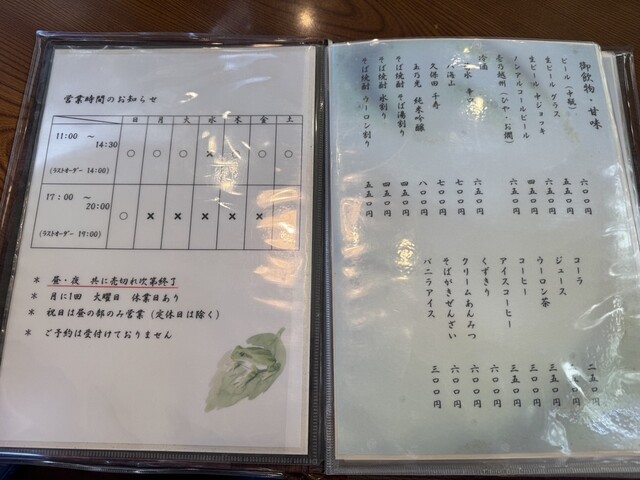 営業時間のお知らせ
日 月 火 水 木 金 土
11:00 ～ 14:30
(ラストオーダー 14:00)
○ ○ ○ × ○ ○
17:00 ～ 20:00
(ラストオーダー 19:00)
○ × × × × ×
* 昼・夜 共に売切れ次第終了
* 月に1回 火曜日 休業日あり
* 祝日は昼の部のみ営業(定休日は除く)
* ご予約は受付けておりません
御飲物・甘味
ビール(中瓶) 六〇〇円
生ビール グラス 五五〇円
生ビール 中ジョッキ 六五〇円
ノンアルコールビール 四五〇円
壱乃越州(ひや・お燗) 六五〇円
冷酒
水 辛口 六五〇円
海山 七〇〇円
久保田 千寿 七〇〇円
玉乃光 純米吟醸 八〇〇円
そば焼酎 そば湯割り 四五〇円
そば焼酎 水割り 四五〇円
そば焼酎 ウーロン割り 五五〇円
コーラ 二五〇円
ジュース 円
ウーロン茶 三〇〇円
コーヒー 三〇〇円
アイスコーヒー 三五〇円
くずきり 六〇〇円
クリームあんみつ 六〇〇円
そばがきぜんざい 六〇〇円
バニラアイス 三〇〇円